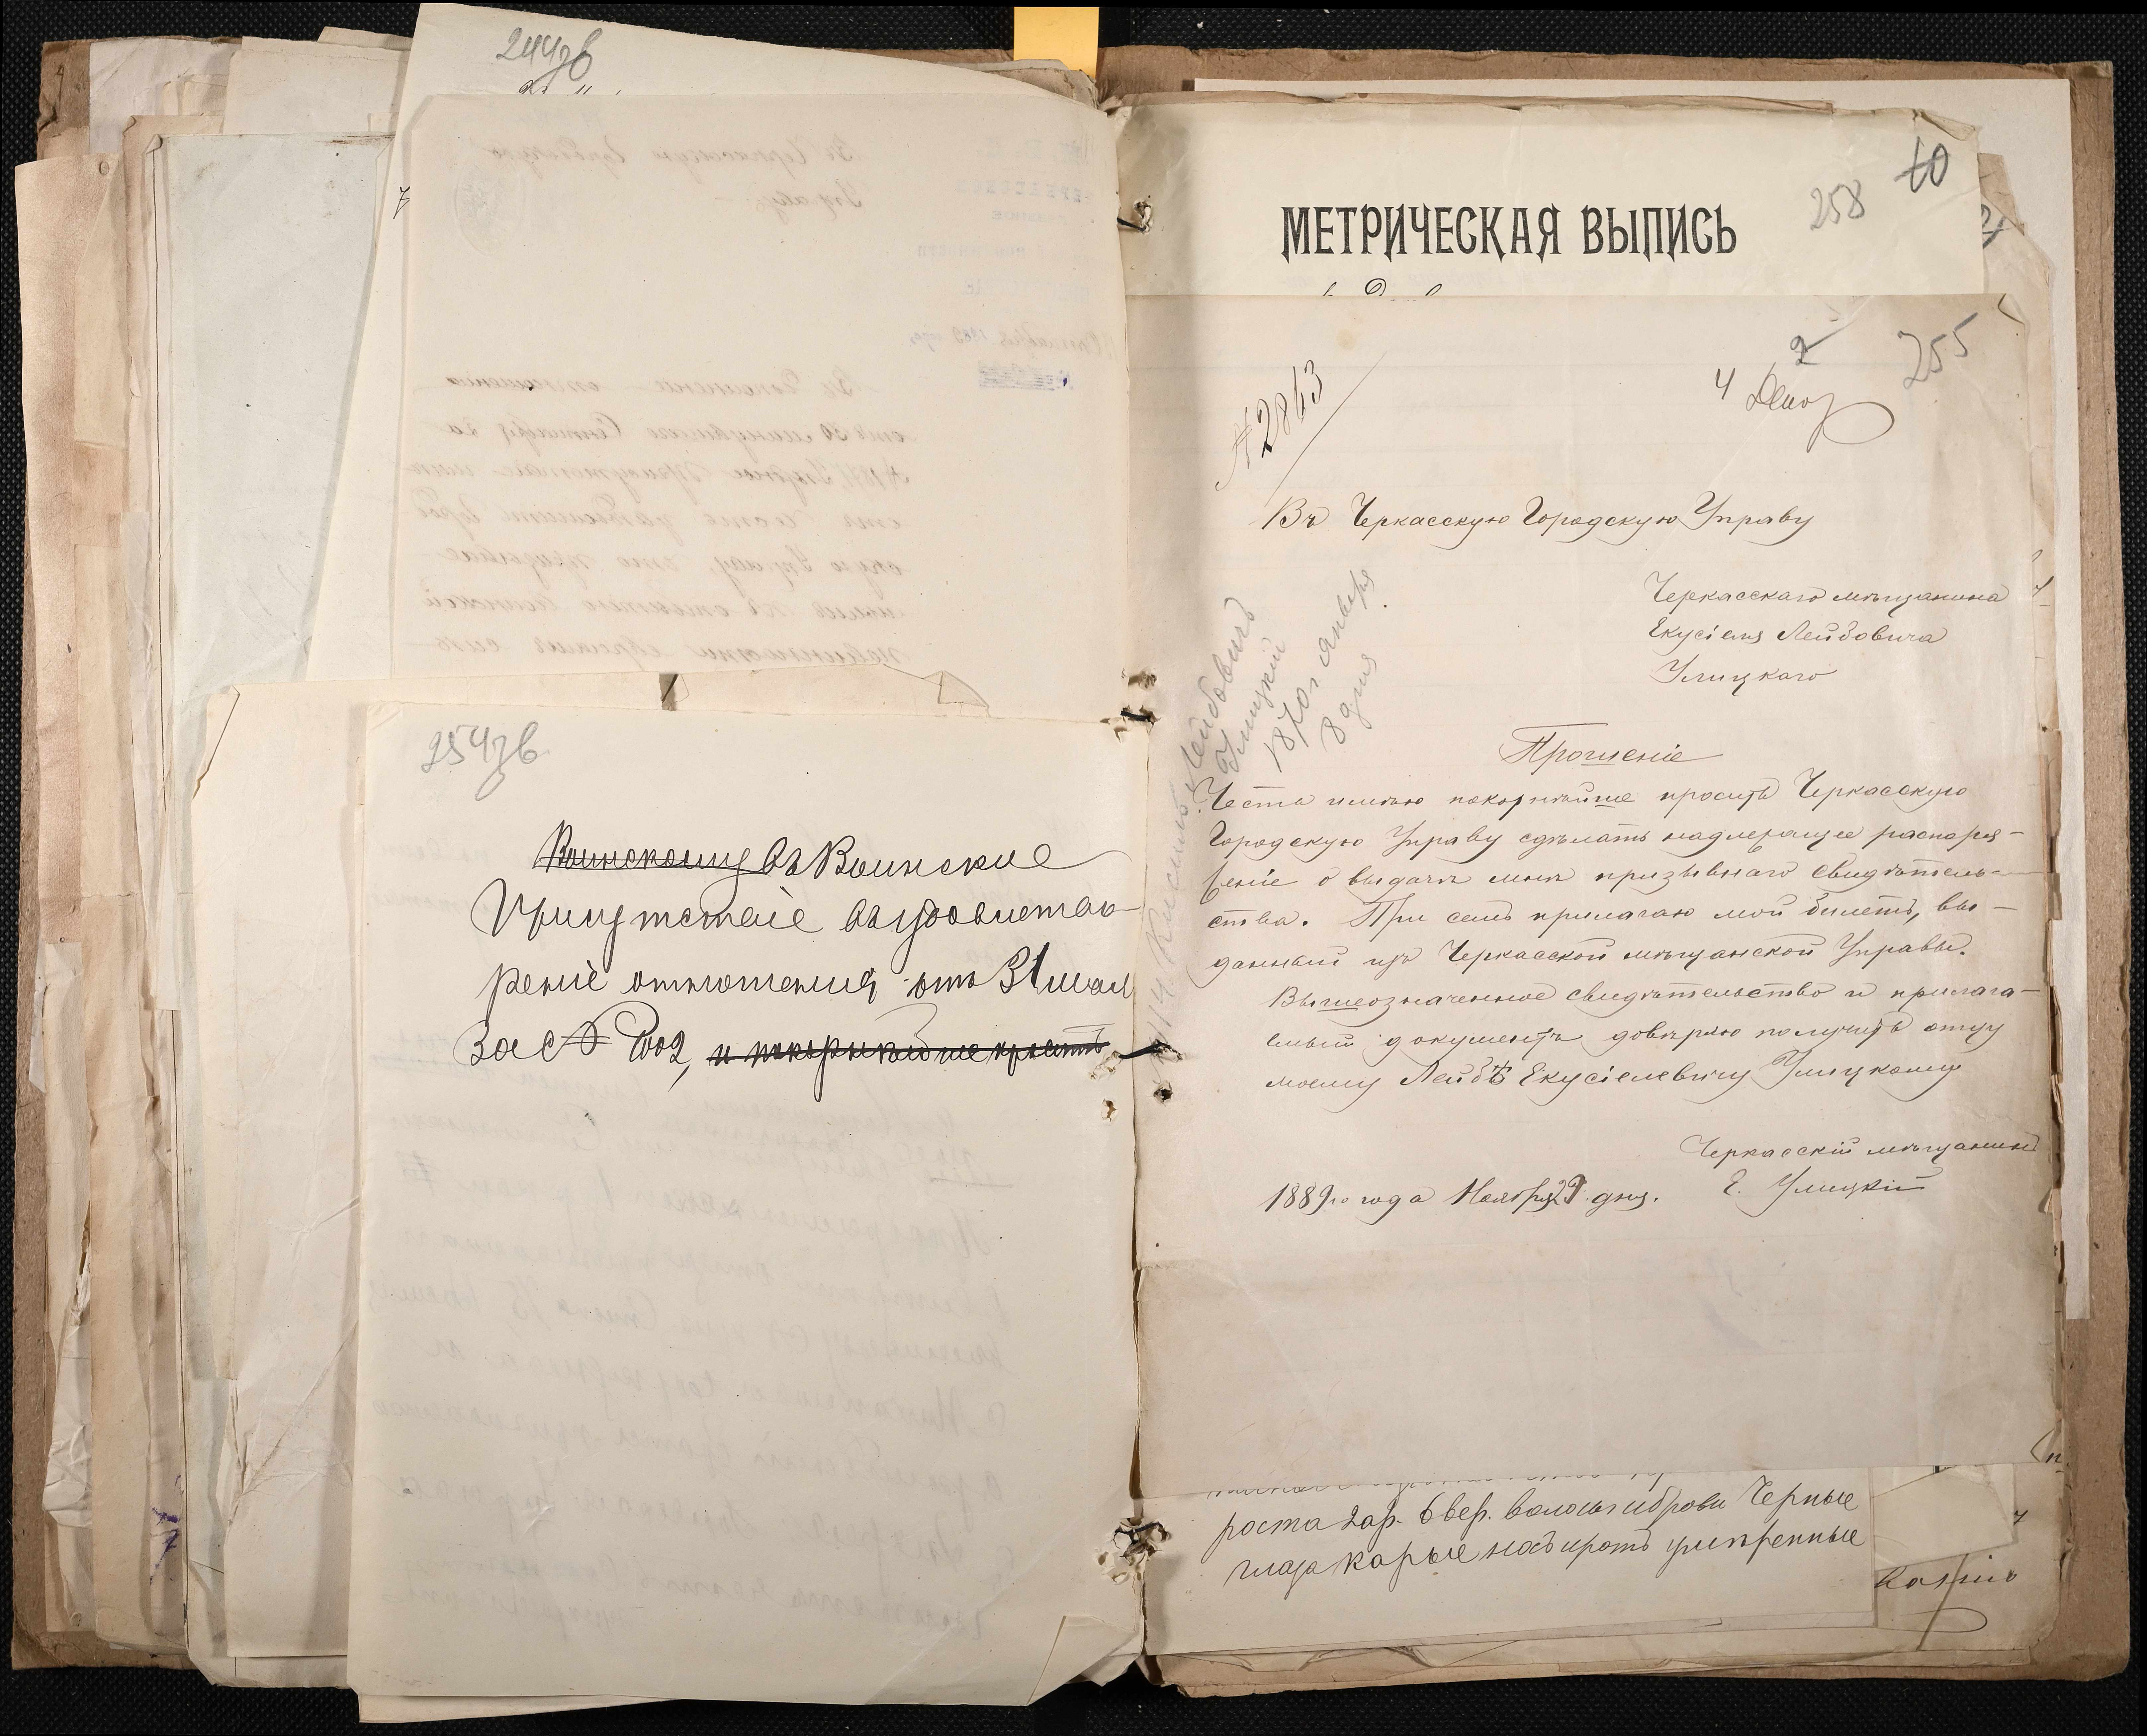 244зв
254зв
Воинскому въ Воинское
Присутствіе въ удовлетво-
реніе отношенія отъ 31 мая
за № 1002, и покорнѣйше проситъ
МЕТРИЧЕСКАЯ ВЫПИСЬ
258
10
255
2
4 Декаб
№ 2863
Въ Черкасскую Городскую Управу
Черкасскаго мѣщанина
Екусіеля Лейбовича
Улицкаго
Лейбовичъ
Улицкій
1870 г. января
8 дня
Прошеніе
Честь имѣю покорнѣйше просить Черкасскую
Городскую Управу сдѣлать надлежащее распоря-
женіе о выдачѣ мнѣ призывнаго свидѣтель-
ства. При семъ прилагаю мой билетъ, вы-
данный изъ Черкасской мѣщанской Управы.
Вышеозначенное свидѣтельство и прилага-
емый документъ довѣряю получить отцу
моему Лейбѣ Екусіелевичу Улицкому
Черкасскій мѣщанинъ
Е. Улицкій
1889го года Ноября 29 дня.
роста 2 ар. 6 вер. волосы и брови Черные
глаза карые носъ и ротъ умѣренные